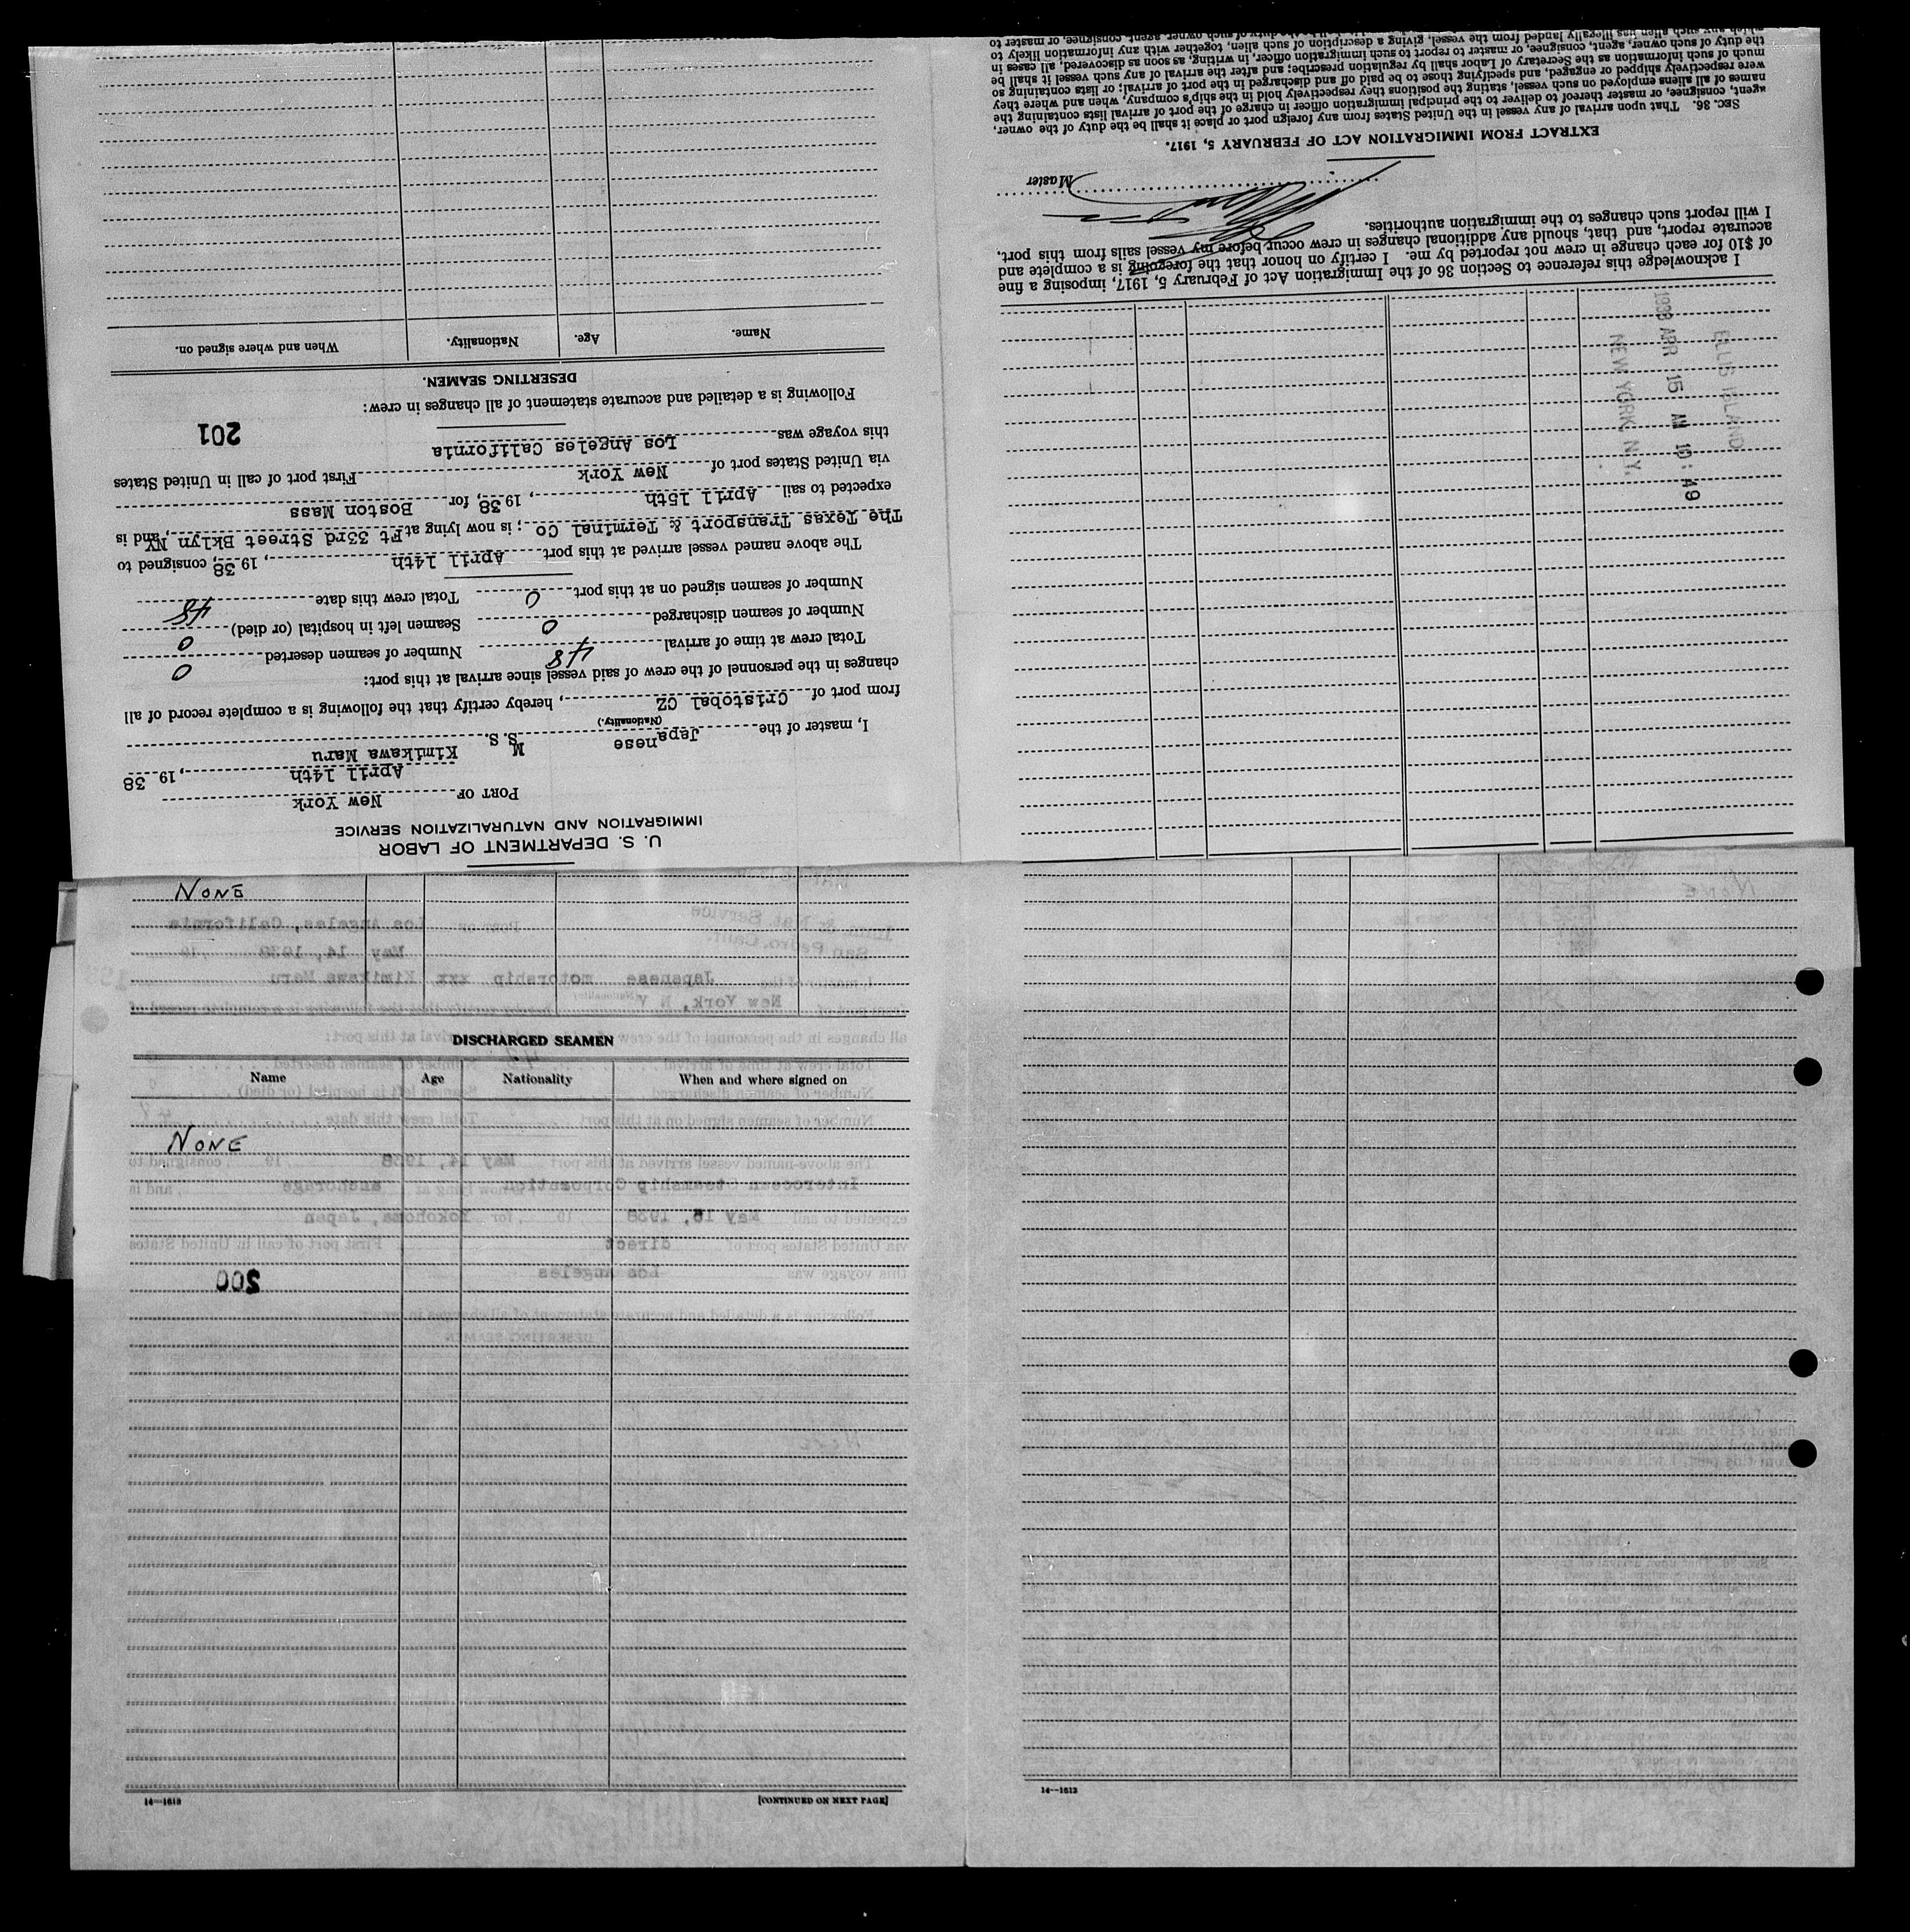 U. S. DEPARTMENT OF LABOR
IMMIGRATION AND NATURALIZATION SERVICE
PORT OF New York
April 14th, 19 38
I, master of the Japanese M S. S. Kimikawa Maru
(Nationality.)
from port of Cristobal CZ, hereby certify that the following is a complete record of all
changes in the personnel of the crew of said vessel since arrival at this port:
Total crew at time of arrival 48 Number of seamen deserted 0
Number of seamen discharged 0 Seamen left in hospital (or died) 0
Number of seamen signed on at this port 0 Total crew this date 48
The above named vessel arrived at this port April 14th, 19 38, consigned to
The Texas Transport & Terminal Co; is now lying at Ft 33rd Street Bklyn NY, and is
expected to sail April 15th, 19 38, for Boston Mass
via United States port of New York First port of call in United States
this voyage was Los Angeles California
201
Following is a detailed and accurate statement of all changes in crew:
DESERTING SEAMEN.
Name. Age. Nationality. When and where signed on.
ELLIS ISLAND
1938 APR 15 AM 10:49
NEW YORK, N.Y.
I acknowledge this reference to Section 36 of the Immigration Act of February 5, 1917, imposing a fine
of $10 for each change in crew not reported by me. I certify on honor that the foregoing is a complete and
accurate report, and that, should any additional changes in crew occur before my vessel sails from this port,
I will report such changes to the immigration authorities.
Master
EXTRACT FROM IMMIGRATION ACT OF FEBRUARY 5, 1917.
SEC. 36. That upon arrival of any vessel in the United States from any foreign port or place it shall be the duty of the owner,
agent, consignee, or master thereof to deliver to the principal immigration officer in charge of the port of arrival lists containing the
names of all aliens employed on such vessel, stating the positions they respectively hold in the ship's company, when and where they
were respectively shipped or engaged, and specifying those to be paid off and discharged in the port of arrival; or lists containing so
much of such information as the Secretary of Labor shall by regulation prescribe; and after the arrival of any such vessel it shall be
the duty of such owner, agent, consignee, or master to report to such immigration officer, in writing, as soon as discovered, all cases in
which any such alien has illegally landed from the vessel, giving a description of such alien, together with any information likely to
NONE
DISCHARGED SEAMEN
Name Age Nationality When and where signed on
NONE
200
14—1613 [CONTINUED ON NEXT PAGE]
14—1613